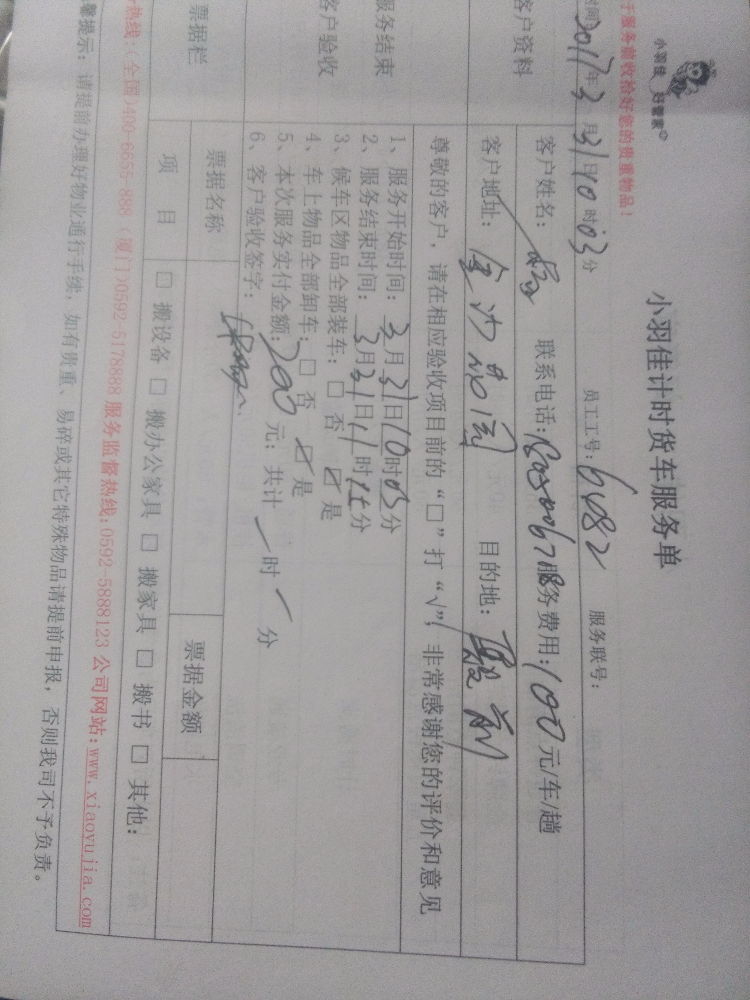 小羽佳 好管家
小羽佳计时货车服务单
行服务前收拾好您的贵重物品!
时间 2017年3月31日10时03分 员工工号: 6082 服务联号:
客户资料
客户姓名: 联系电话: 服务费用: 100元/车/趟
客户地址: 目的地:
尊敬的客户,请在相应验收项目前的“□”打“√”,非常感谢您的评价和意见
服务结束
客户验收
1、服务开始时间: 3月31日10时03分
2、服务结束时间: 3月31日11时15分
3、候车区物品全部装车: □ 否 ☑ 是
4、车上物品全部卸车: □ 否 ☑ 是
5、本次服务实付金额: 200元; 共计 / 时 / 分
6、客户验收签字:
票据栏
票据名称 票据金额
项 目 □ 搬设备 □ 搬办公家具 □ 搬家具 □ 搬书 □ 其他:
热线:(全国)400-6655-888 (厦门)0592-5178888 服务监督热线:0592-5888123 公司网站:www.xiaoyujia.com
馨提示: 请提前办理好物业通行手续, 如有贵重、易碎或其它特殊物品请提前申报, 否则我司不予负责。